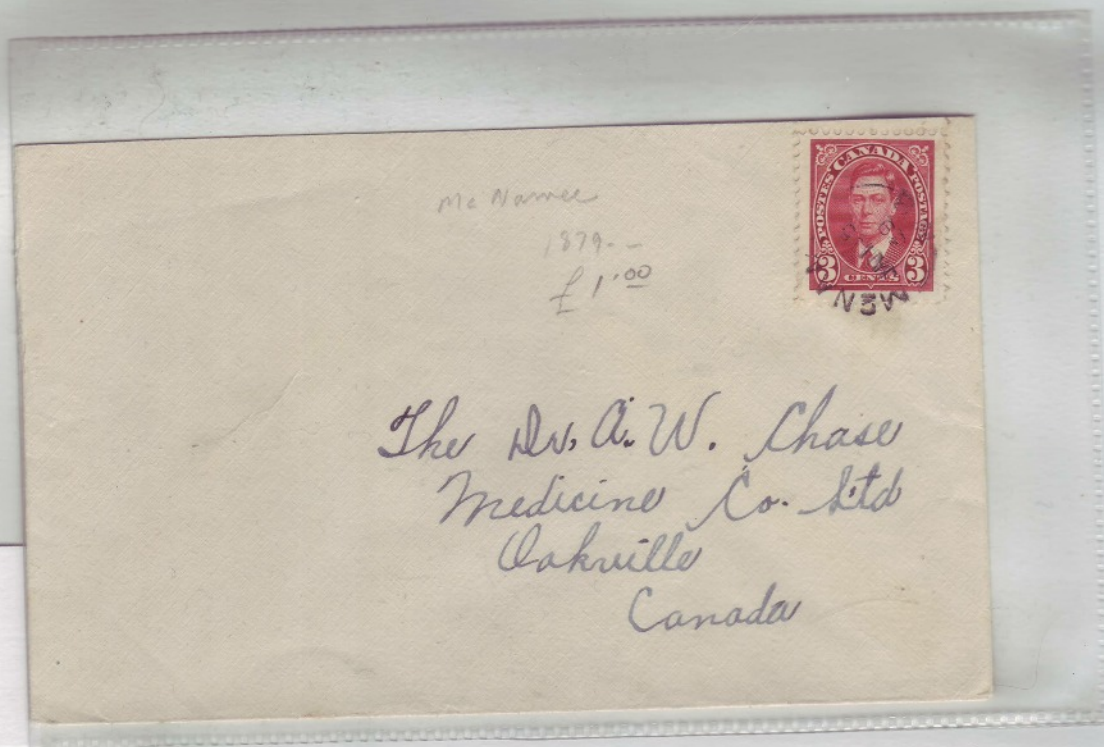 Mc Namee
1879--
£1.00
CANADA
POSTES POSTAGE
3 CENTS 3
The Dr. A. W. Chase
Medicine Co. Ltd
Oakville
Canada